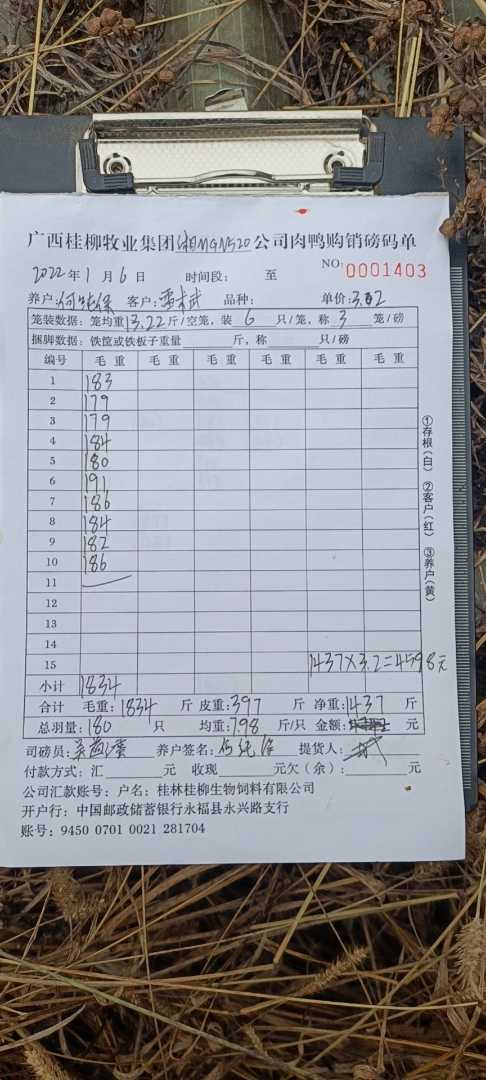 广西桂柳牧业集团 公司肉鸭购销磅码单
2022年1月6日 时间段: 至 NO: 0001403
养户: 何纯保 客户: 品种: 单价:3.
笼装数据: 笼均重13.22斤/空笼, 装6只/笼, 称3笼/磅
捆脚数据: 铁筐或铁板子重量 斤, 称 只/磅
编号 毛重 毛重 毛重 毛重 毛重 毛重
1 183
2 179
3 179
4 184
5 180
6 191
7 186
8 184
9 182
10 186
11
12
13
14
15 1437×3.2=4598元
小计 1834
合计 毛重:1834斤 皮重:397斤 净重:1437斤
总羽量:180只 均重:7.98斤/只 金额: 元
司磅员: 养户签名:何纯保 提货人:
付款方式: 汇 元 收现 元欠(余): 元
公司汇款账号: 户名: 桂林桂柳生物饲料有限公司
开户行: 中国邮政储蓄银行永福县永兴路支行
账号: 9450 0701 0021 281704
①存根(白) ②客户(红) ③养户(黄)